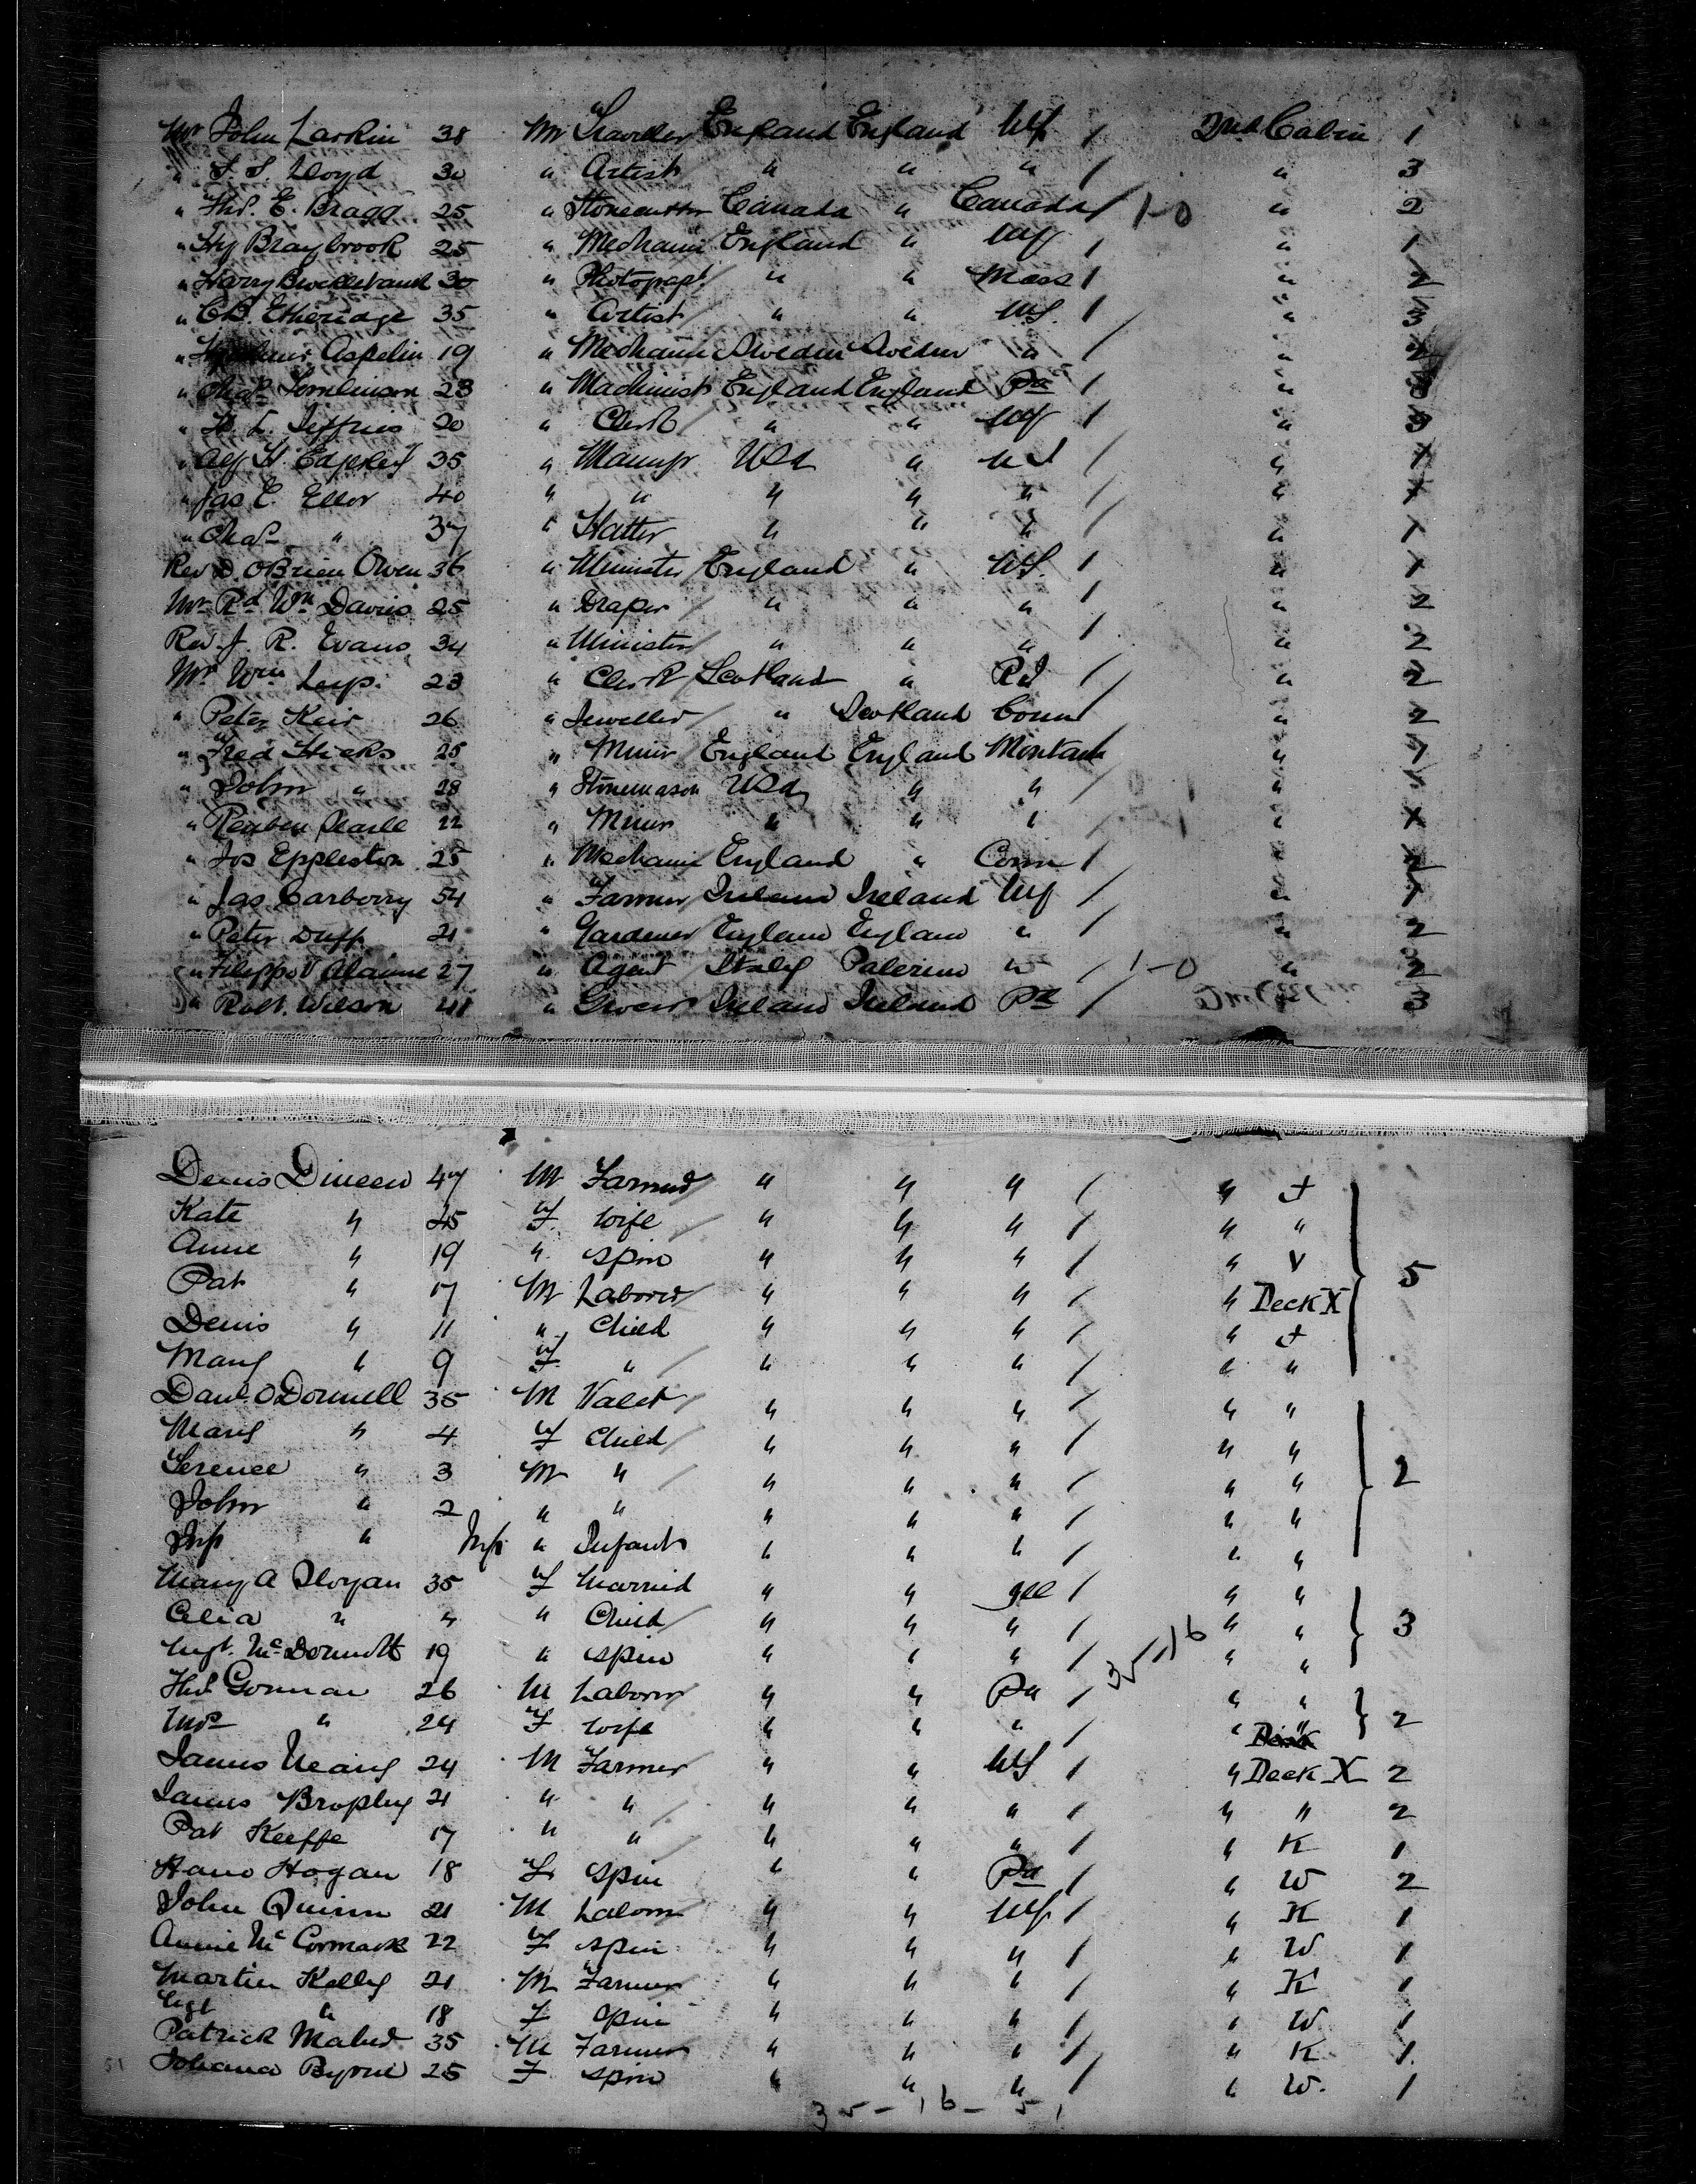 Mr John Larkin 38 M Traveller England England NY / 2nd Cabin 1
" T. S. Lloyd 30 " Artist " " " / " 3
" Thos. E. Bragg 25 " Stonecutter Canada " Canada / 1-0 " 2
" Hy Braybrook 25 " Mechanic England " NY / " 1
" Harry 30 " Photograph " " Mass / " 2
" C.B. Etheridge 35 " Artist " " NY / " 3
" Aspelin 19 " Mechanic Sweden Sweden " / " 2
" Chas Tomlinson 23 " Machinist England England Pa / " 3
" H. L. Jeffries 20 " Clerk " " NY / " 3
" Alf H. 35 " Manufr USA " NJ / " 1
" Jas E. Ellor 40 " " " " " / " 1
" Chas " 37 " Hatter " " " / " 1
Rev D. OBrien Owen 36 " Minister England " NY / " 1
Mr Rd Wm Davis 25 " Draper " " " / " 2
Rev. J. R. Evans 34 " Minister " " " / " 2
Mr Wm 23 " Clerk Scotland " RI / " 2
" Peter Keir 26 " Jeweller " Scotland Conn / " 2
" Fred Hicks 25 " Miner England England Montana / " 1
" John " 28 " Stonemason USA " " / " 1
" Reuben Searle 22 " Miner " " " / " 1
" Jos Eppleston 25 " Mechanic England " Conn / " 2
" Jas Carberry 54 " Farmer Ireland Ireland NY / " 1
" Peter Duff 21 " Gardener England England " / " 2
" Filippo 27 " Agent Italy Palermo " / 1-0 " 2
" Robt. Wilson 41 " Grocer Ireland Ireland Pa / 3
Denis Dineen 47 M Farmer " " " / " +
Kate " 45 F Wife " " " / " "
Anne " 19 " Spin " " " / " V
Pat " 17 M Laborer " " " / " Deck X 5
Denis " 11 " Child " " " / " +
Mary " 9 F " " " " / " "
Danl. O Donnell 35 M Valet " " " / " "
Mary " 4 F Child " " " / " "
Terence " 3 M " " " " / " " 2
John " 2 " " " " " / " "
Inf " Inf " Infant " " " / " "
Mary A Sloyan 35 F Married " " Ill / " "
Celia " 4 " Child " " " / " " 3
Mgt. McDermott 19 " Spin " " " / 35-16 " "
Thos Gorman 26 M Laborer " " Pa / " "
Mrs " 24 F Wife " " " / " " 2
James Neary 24 M Farmer " " NY / " Deck X 2
James Brophy 21 " " " " " / " " 2
Pat Keeffe 17 " " " " " / " K 1
Hano Hogan 18 F Spin " " Pa / " W 2
John Quinn 21 M Laborer " " NY / " K 1
Annie Mc Cormack 22 F Spin " " " / " W 1
Martin Kelly 21 M Farmer " " " / " K 1
Mgt " 18 F Spin " " " / " W 1
Patrick Maher 35 M Farmer " " " / " K 1
Johana Byrne 25 F Spin " " " / " W. 1
35-16-51